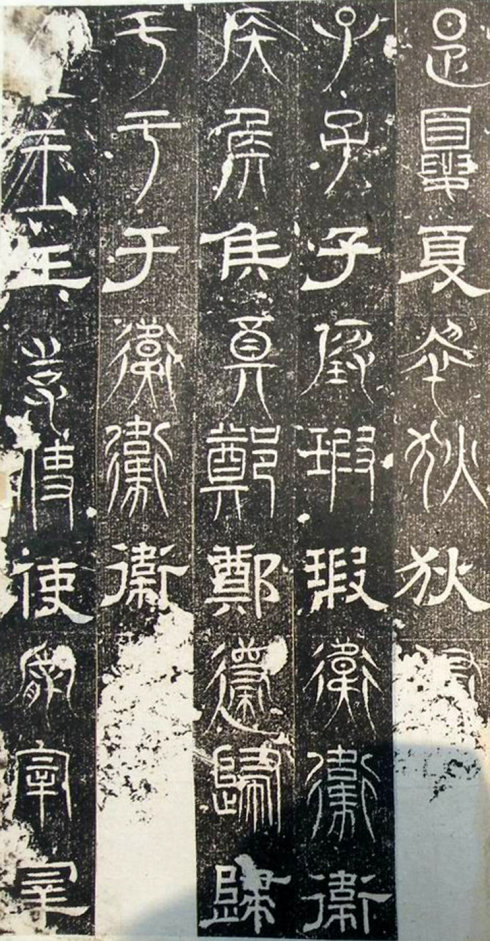 夏夏夏狄狄狄
子子子瑕瑕瑕衛衛衛
侯侯侯鄭鄭鄭歸歸歸
于于于衛衛衛
王王王使使使宰宰宰